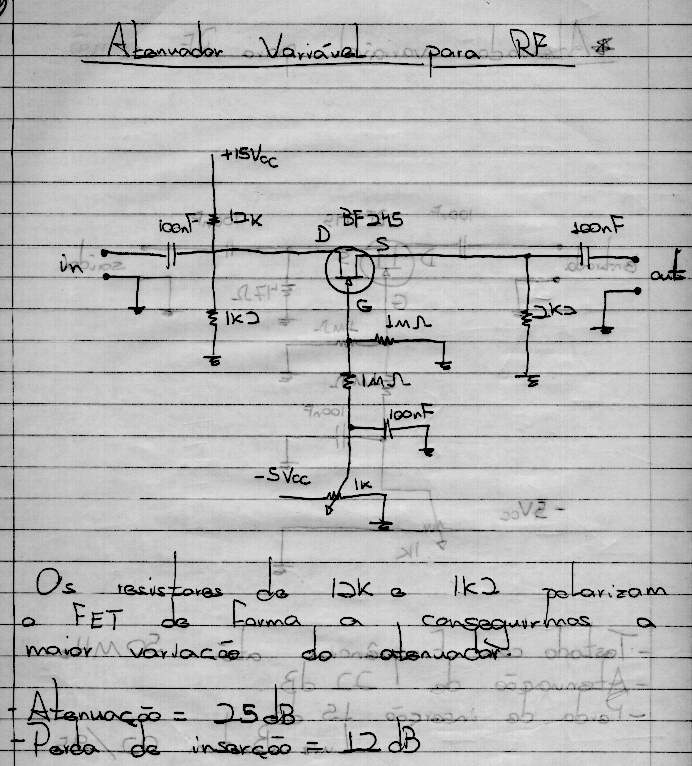 Atenuador Variável para RF *
+15Vcc
100nF 12K BF245 100nF
D S
in out
1K2 G 1MΩ 2K2
1MΩ
100nF
-5Vcc 1K
Os resistores de 12K e 1K2 polarizam
o FET de forma a conseguirmos a
maior variação do atenuador.
- Atenuação = 25dB
- Perda de inserção = 12dB